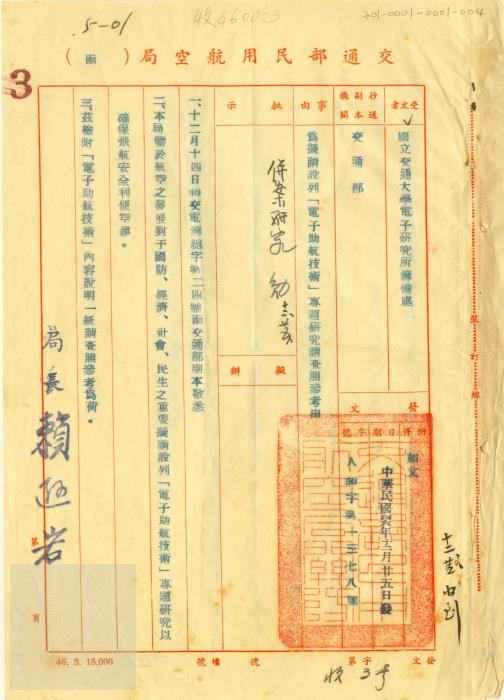 5-01
收460003
301-0001-0001-004
交通部民用航空局（函）
3
受文者
國立交通大學電子研究所籌備處
抄送副本機關
交通部
事由
為擬請設列「電子助航技術」專題研究請查照參考由
批示
併案研究
擬辦
發文
附件日期字號
如文
中華民國46年十二月廿五日發
人 字第十三七八號
一、十二月十四日 交電籌總字第二四號函交通部副本敬悉
二、本局鑒於航空之發展對于國防、經濟、社會、民生之重要擬請設列「電子助航技術」專題研究以
確保飛航安全利便空運。
三、茲檢附「電子助航技術」內容說明一紙請查照參考為荷。
局長 賴遜岩
第 頁
裝訂線
46. 3. 15.000
檔號
號
發文 字第
收 3号